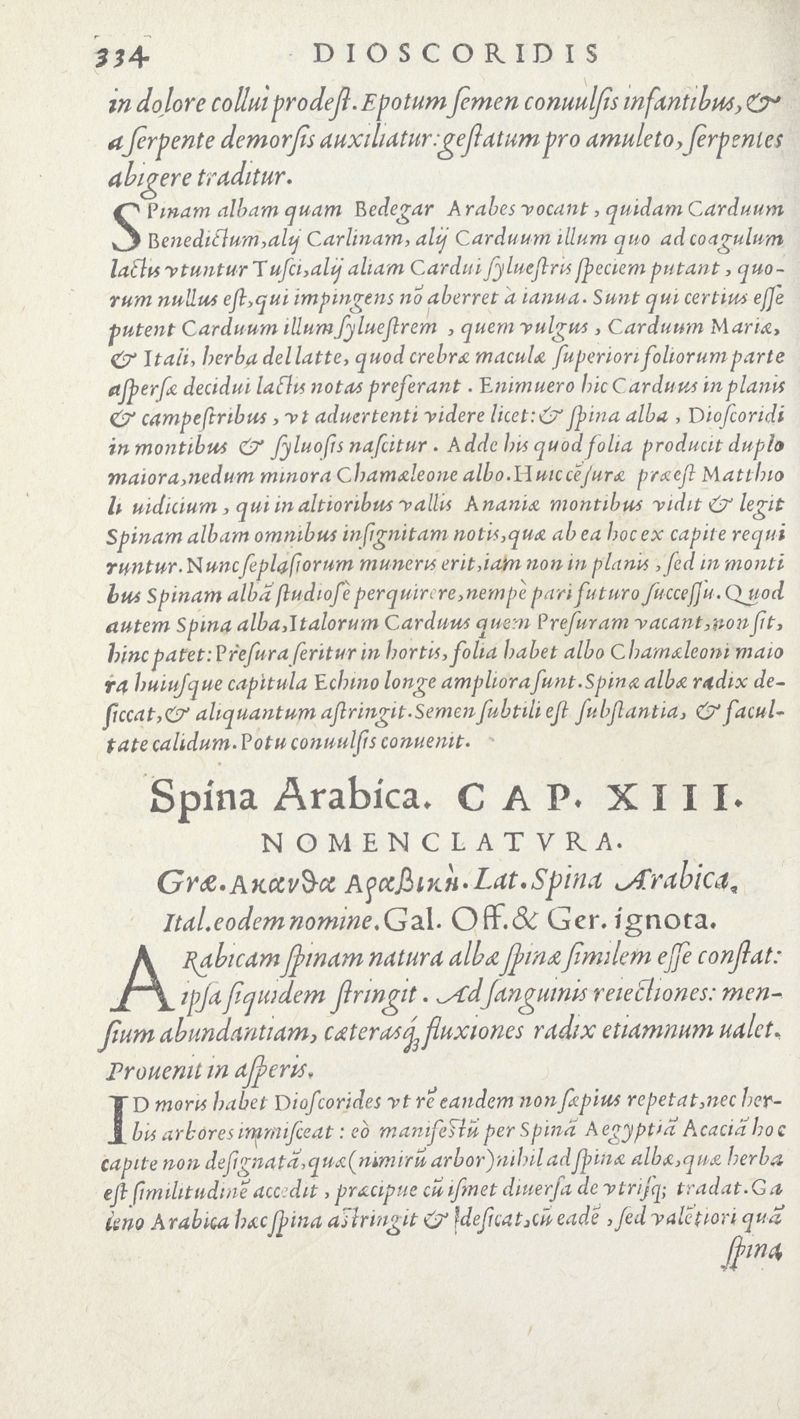 334 DIOSCORIDIS
in dolore collui prodeſt. Epotum ſemen conuulſis infantibus, &
a ſerpente demorſis auxiliatur: geſtatum pro amuleto, ſerpentes
abigere traditur.
SPinam albam quam Bedegar Arabes vocant, quidam Carduum
Benedictum, alij Carlinam, alij Carduum illum quo ad coagulum
lactis vtuntur Tuſci, alij aliam Cardui ſylueſtris ſpeciem putant, quo-
rum nullus eſt, qui impingens nõ aberret à ianua. Sunt qui certius eſſe
putent Carduum illum ſylueſtrem, quem vulgus, Carduum Mariæ,
& Itali, herba del latte, quod crebræ maculæ ſuperiori foliorum parte
aſperſæ decidui lactis notas preferant. Enimuero hic Carduus in planis
& campeſtribus, vt aduertenti videre licet: & ſpina alba, Dioſcoridi
in montibus & ſyluoſis naſcitur. Adde his quod folia producit duplo
maiora, nedum minora Chamæleone albo. Huic cẽſuræ præeſt Matthio
li uidicium, qui in altioribus vallis Ananiæ montibus vidit & legit
Spinam albam omnibus inſignitam notis, quæ ab ea hoc ex capite requi
runtur. Nunc ſeplaſiorum muneris erit, iam non in planis, ſed in monti
bus Spinam albã ſtudioſè perquirere, nempè pari futuro ſucceſſu. Quod
autem Spina alba, Italorum Carduus quem Preſuram vacant, non ſit,
hinc patet: Preſura ſeritur in hortis, folia habet albo Chamæleoni maio
ra huiuſque capitula Echino longe ampliora ſunt. Spinæ albæ radix de-
ſiccat, & aliquantum aſtringit. Semen ſubtili eſt ſubſtantia, & facul-
tate calidum. Potu conuulſis conuenit.
Spina Arabica. CAP. XIII.
NOMENCLATVRA.
Græ. Ακανθα Αραβικὴ. Lat. Spina Arabica,
Ital. eodem nomine. Gal. Off. & Ger. ignota.
ARabicam ſpinam natura albæ ſpinæ ſimilem eſſe conſtat:
ipſa ſiquidem ſtringit. Ad ſanguinis reiectiones: men-
ſium abundantiam, cæterasq́; fluxiones radix etiamnum ualet.
Prouenit in aſperis.
ID moris habet Dioſcorides vt rẽ eandem non ſæpius repetat, nec her-
bis arbores immiſceat: eò manifeſtũ per Spinã Aegyptiã Acaciã hoc
capite non deſignatã, quæ (nimirũ arbor) nihil ad ſpinæ albæ, quæ herba
eſt ſimilitudinẽ accedit, præcipue cũ iſmet diuerſa de vtriſq; tradat. Ga
leno Arabica hæc ſpina aſtringit & deſicat, cũ eadẽ, ſed valẽtiori quã
ſpina